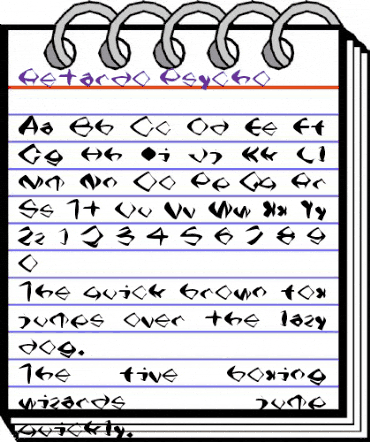 Retardo Psycho
Aa Bb Cc Dd Ee Ff
Gg Hh Ii Jj Kk Ll
Mm Nn Oo Pp Qq Rr
Ss Tt Uu Vv Ww Xx Yy
Zz 1 2 3 4 5 6 7 8 9
0
The quick brown fox
jumps over the lazy
dog.
The five boxing
wizards jump
quickly.